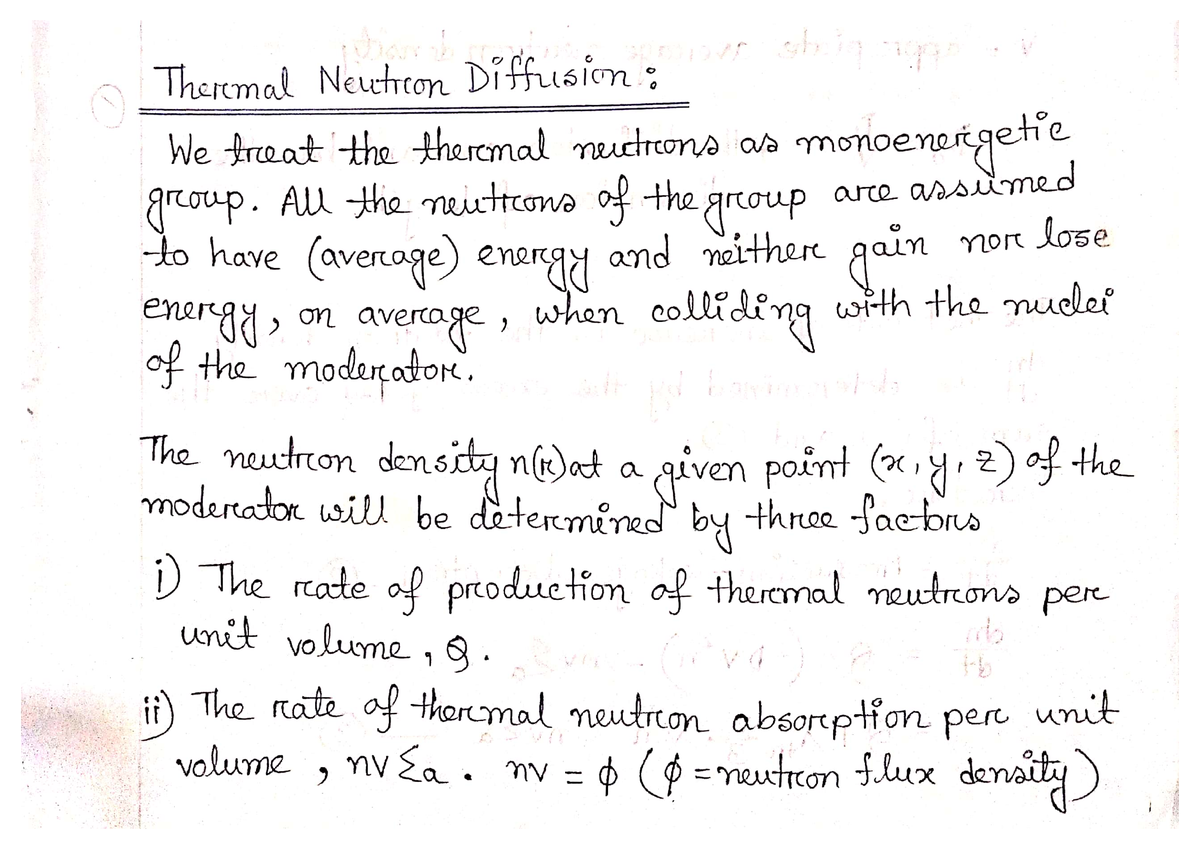 Thermal Neutron Diffusion :
We treat the thermal neutrons as monoenergetic
group. All the neutrons of the group are assumed
to have (average) energy and neither gain nor lose
energy, on average, when colliding with the nuclei
of the moderator.
The neutron density n(r) at a given point (x, y, z) of the
moderator will be determined by three factors
i) The rate of production of thermal neutrons per
unit volume, Q.
ii) The rate of thermal neutron absorption per unit
volume, nvΣa. nv = φ (φ = neutron flux density)